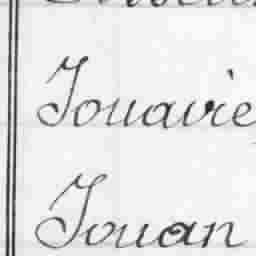 Jouavie
Jouan